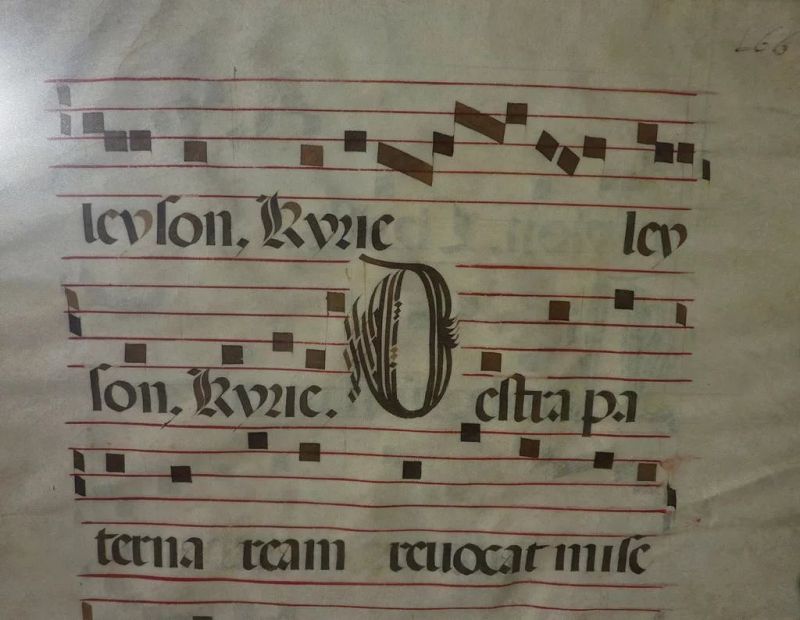 leyson. Kyrie ley
son. Kyrie. Destra pa
terna ream reuocat mise